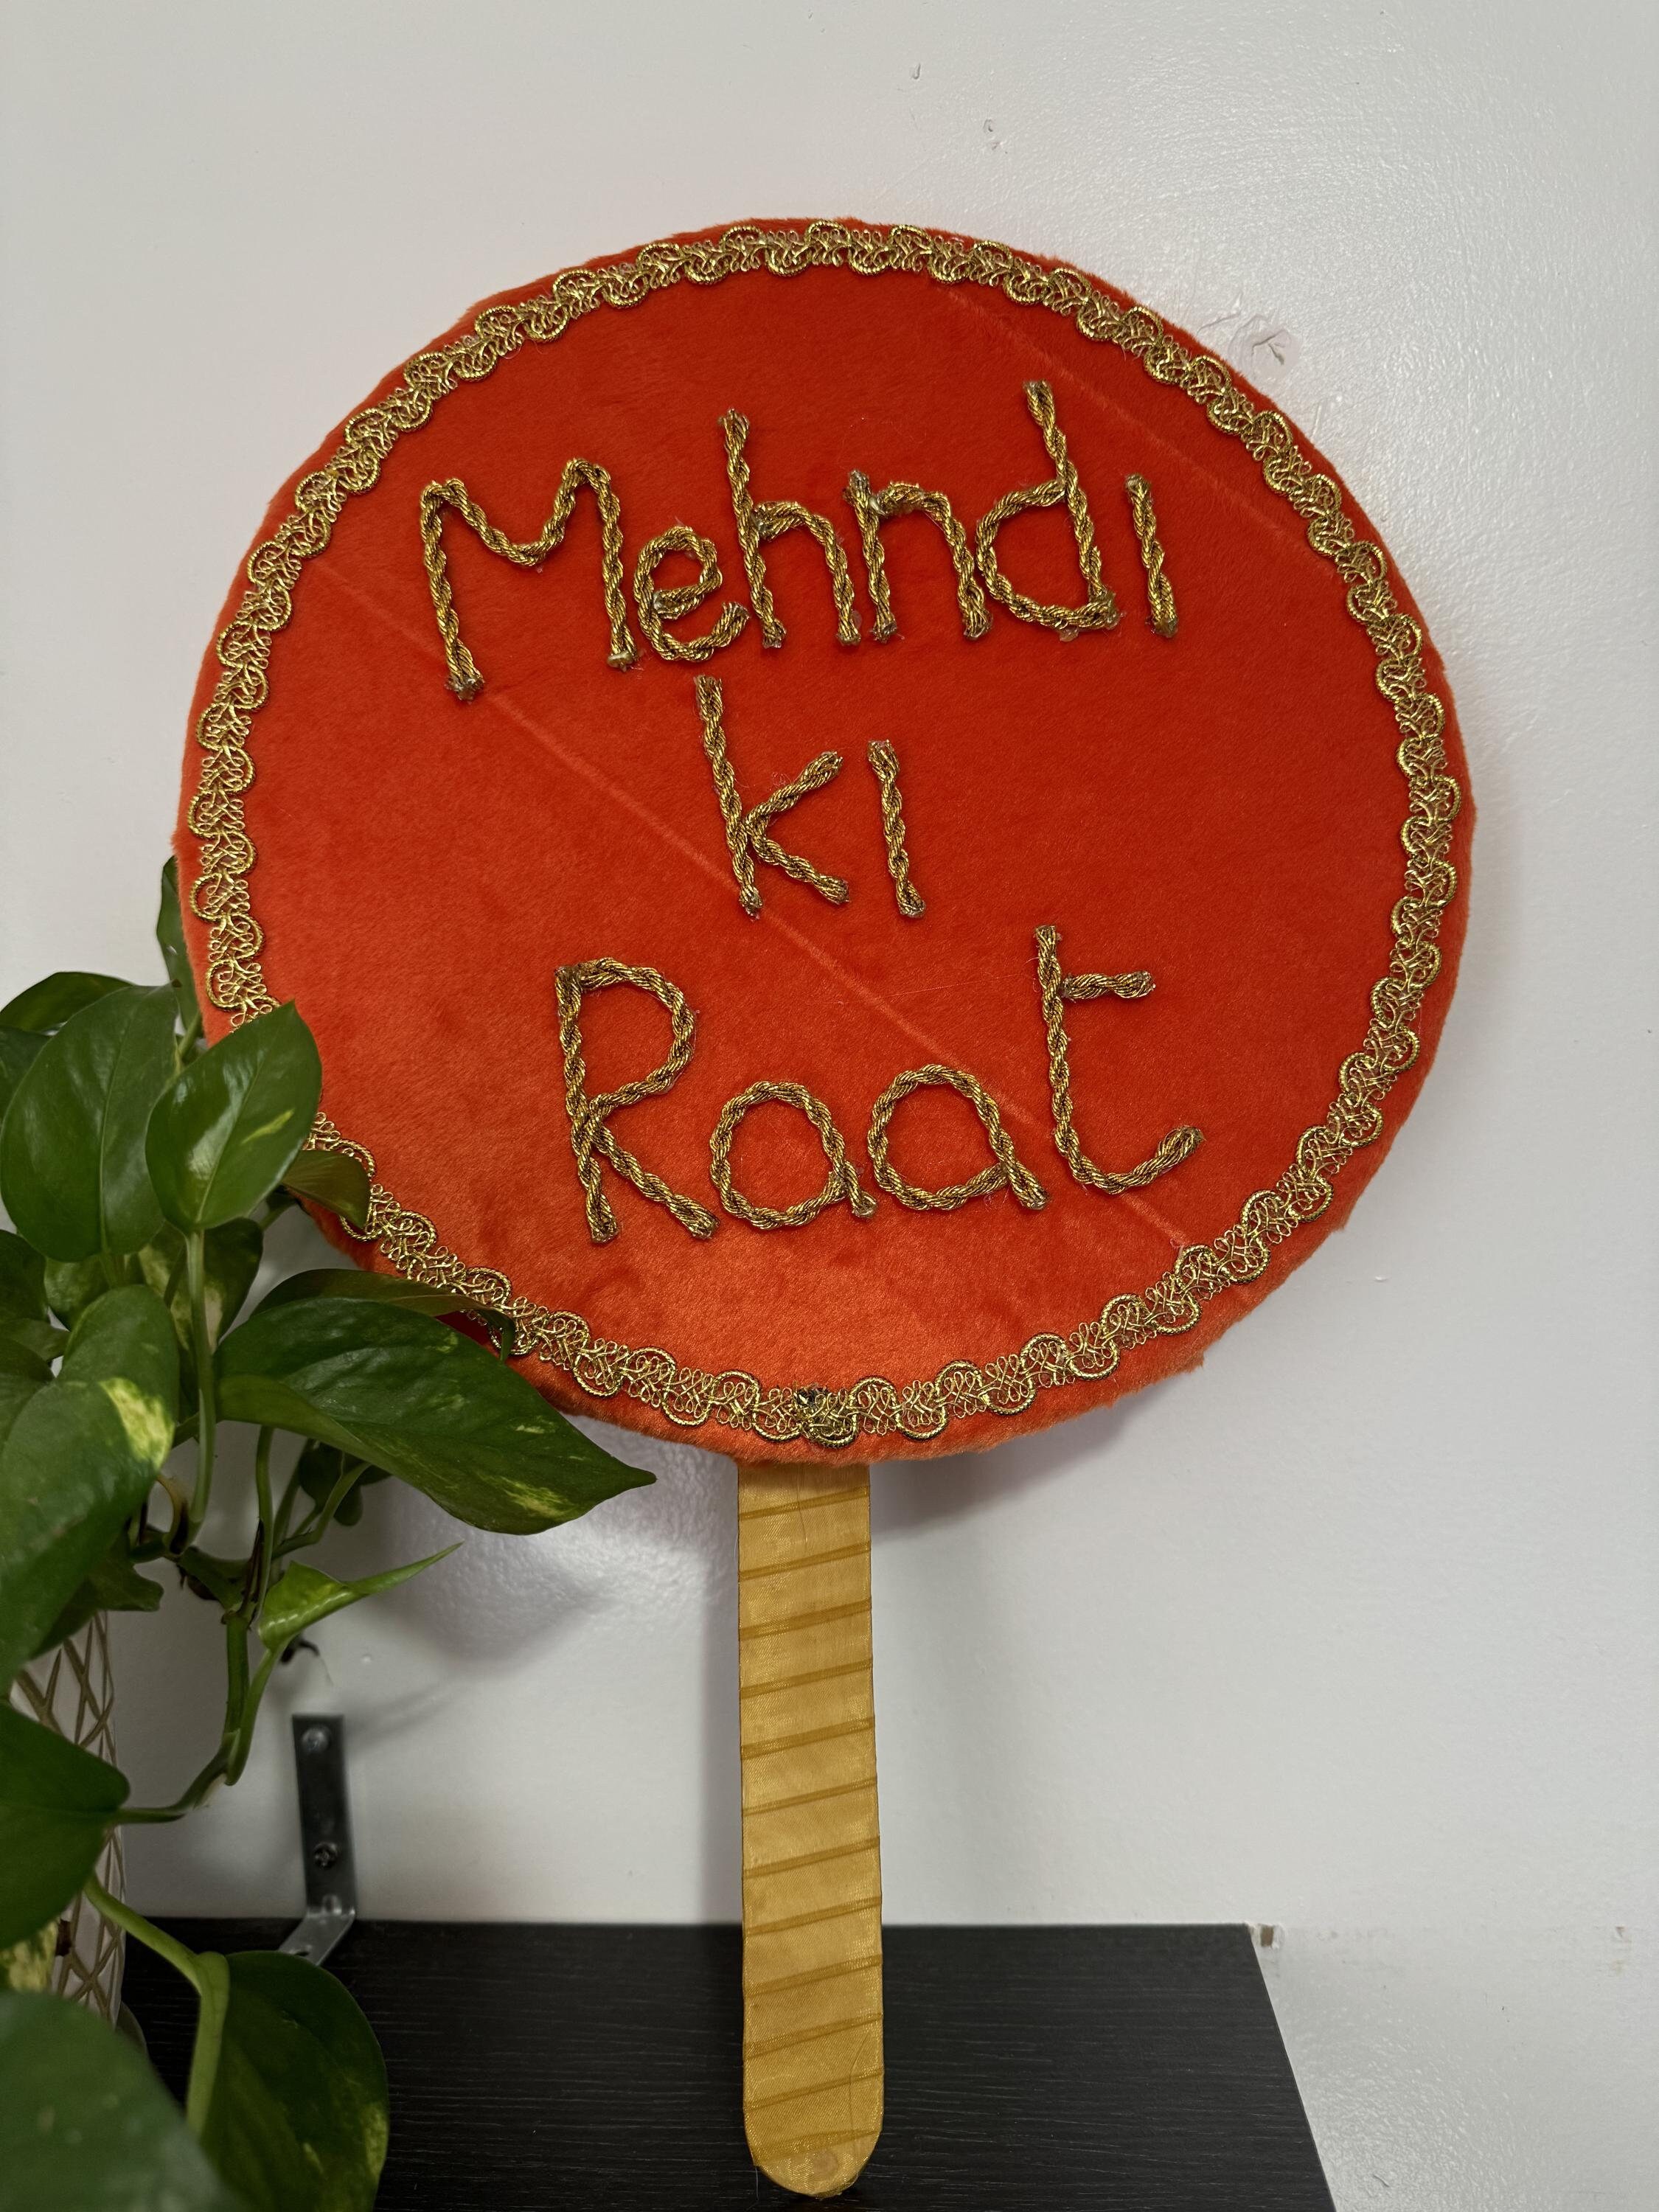 Mehndi
ki
Raat